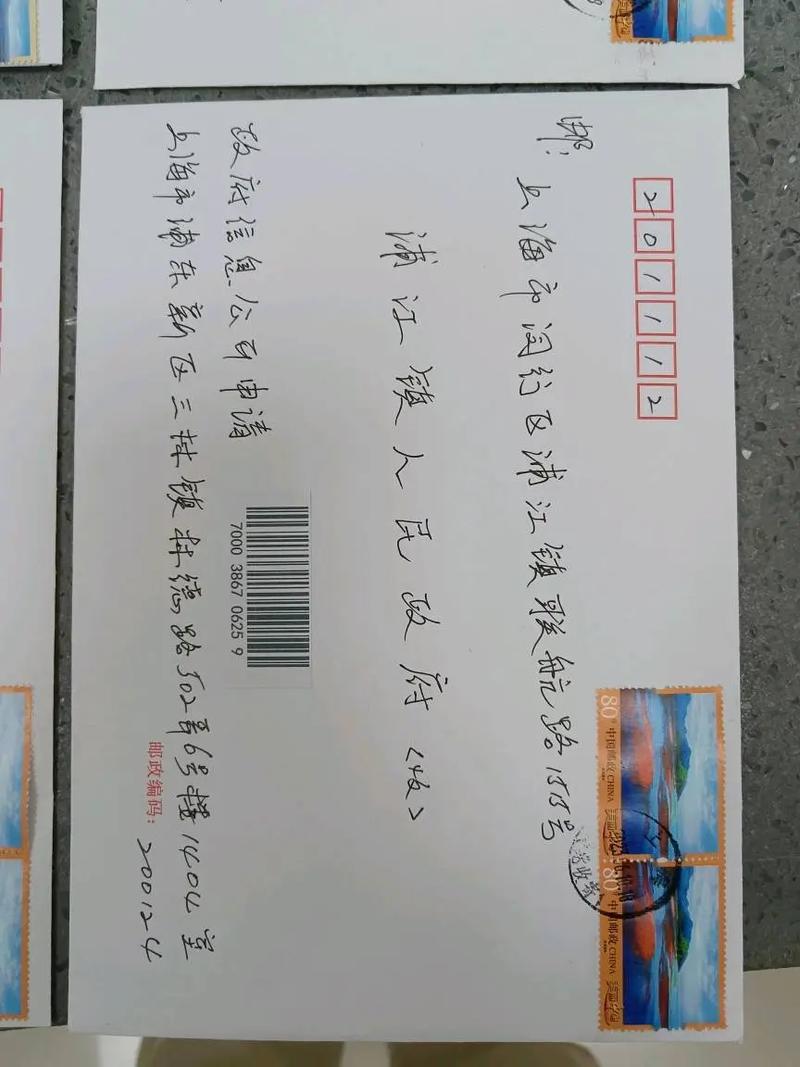 201112
邮：上海市闵行区浦江镇联航路1515号
浦江镇人民政府（收）
政府信息公开申请
上海市浦东新区三林镇林德路502弄6号楼1404室
7000 3867 0625 9
邮政编码：200124
80 中国邮政 CHINA
80 中国邮政 CHINA